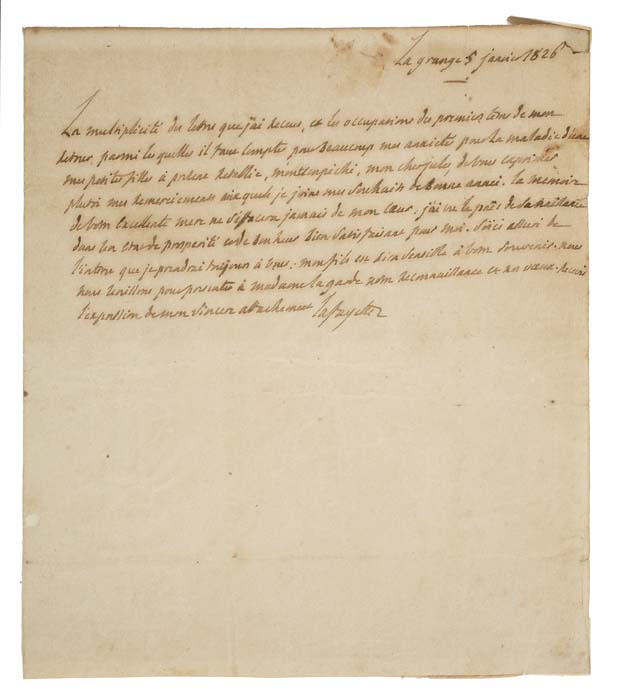 La grange 5 janvier 1826
La multiplicité des lettres que j'ai recues, et les occupations des premiers tems de mon
retour, parmi les quelles il faut compter pour Beaucoup mes anxietés pour la maladie d'une
mes petites filles à présent retablie, m'ont empeché, mon cher jules, de vous exprimer
plutot mes remerciemens aux quels je joins mes souhaits de Bonne année. la memoire
de votre Excellente mere ne s'effacera jamais de mon Cœur. j'ai vu le païs de sa naissance
dans un etat de prosperité et de Bonheur Bien satisfaisant pour moi. Soiés assuré de
l'interet que je prendrai toujours à vous. mon fils est Bien sensible à votre souvenir. nous
vous à madame la garde notre Reconnaissance et nos vœux. Recevés
l'expression de mon sincere attachement Lafayette